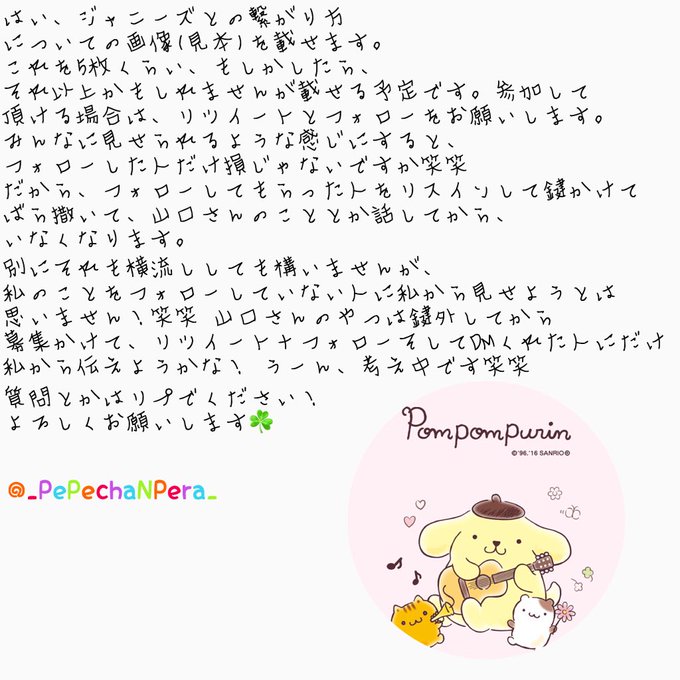 はい、ジャニーズとの繋がり方
についての画像(見本)を載せます。
これを5枚くらい、もしかしたら、
それ以上かもしれませんが載せる予定です。参加して
頂ける場合は、リツイートとフォローをお願いします。
みんなに見せられるような感じにすると、
フォローした人だけ損じゃないですか笑笑
だから、フォローしてもらった人をリスインして鍵かけて
ばら撒いて、山口さんのこととか話してから、
いなくなります。
別にそれも横流ししても構いませんが、
私のことをフォローしていない人に私から見せようとは
思いません!笑笑 山口さんのやつは鍵外してから
募集かけて、リツイート+フォローそしてDMくれた人にだけ
私から伝えようかな! うーん、考え中です笑笑
質問とかはリプでください!
よろしくお願いします☘
@_PePechaNPera_
Pompompurin
©'96,'16 SANRIO®